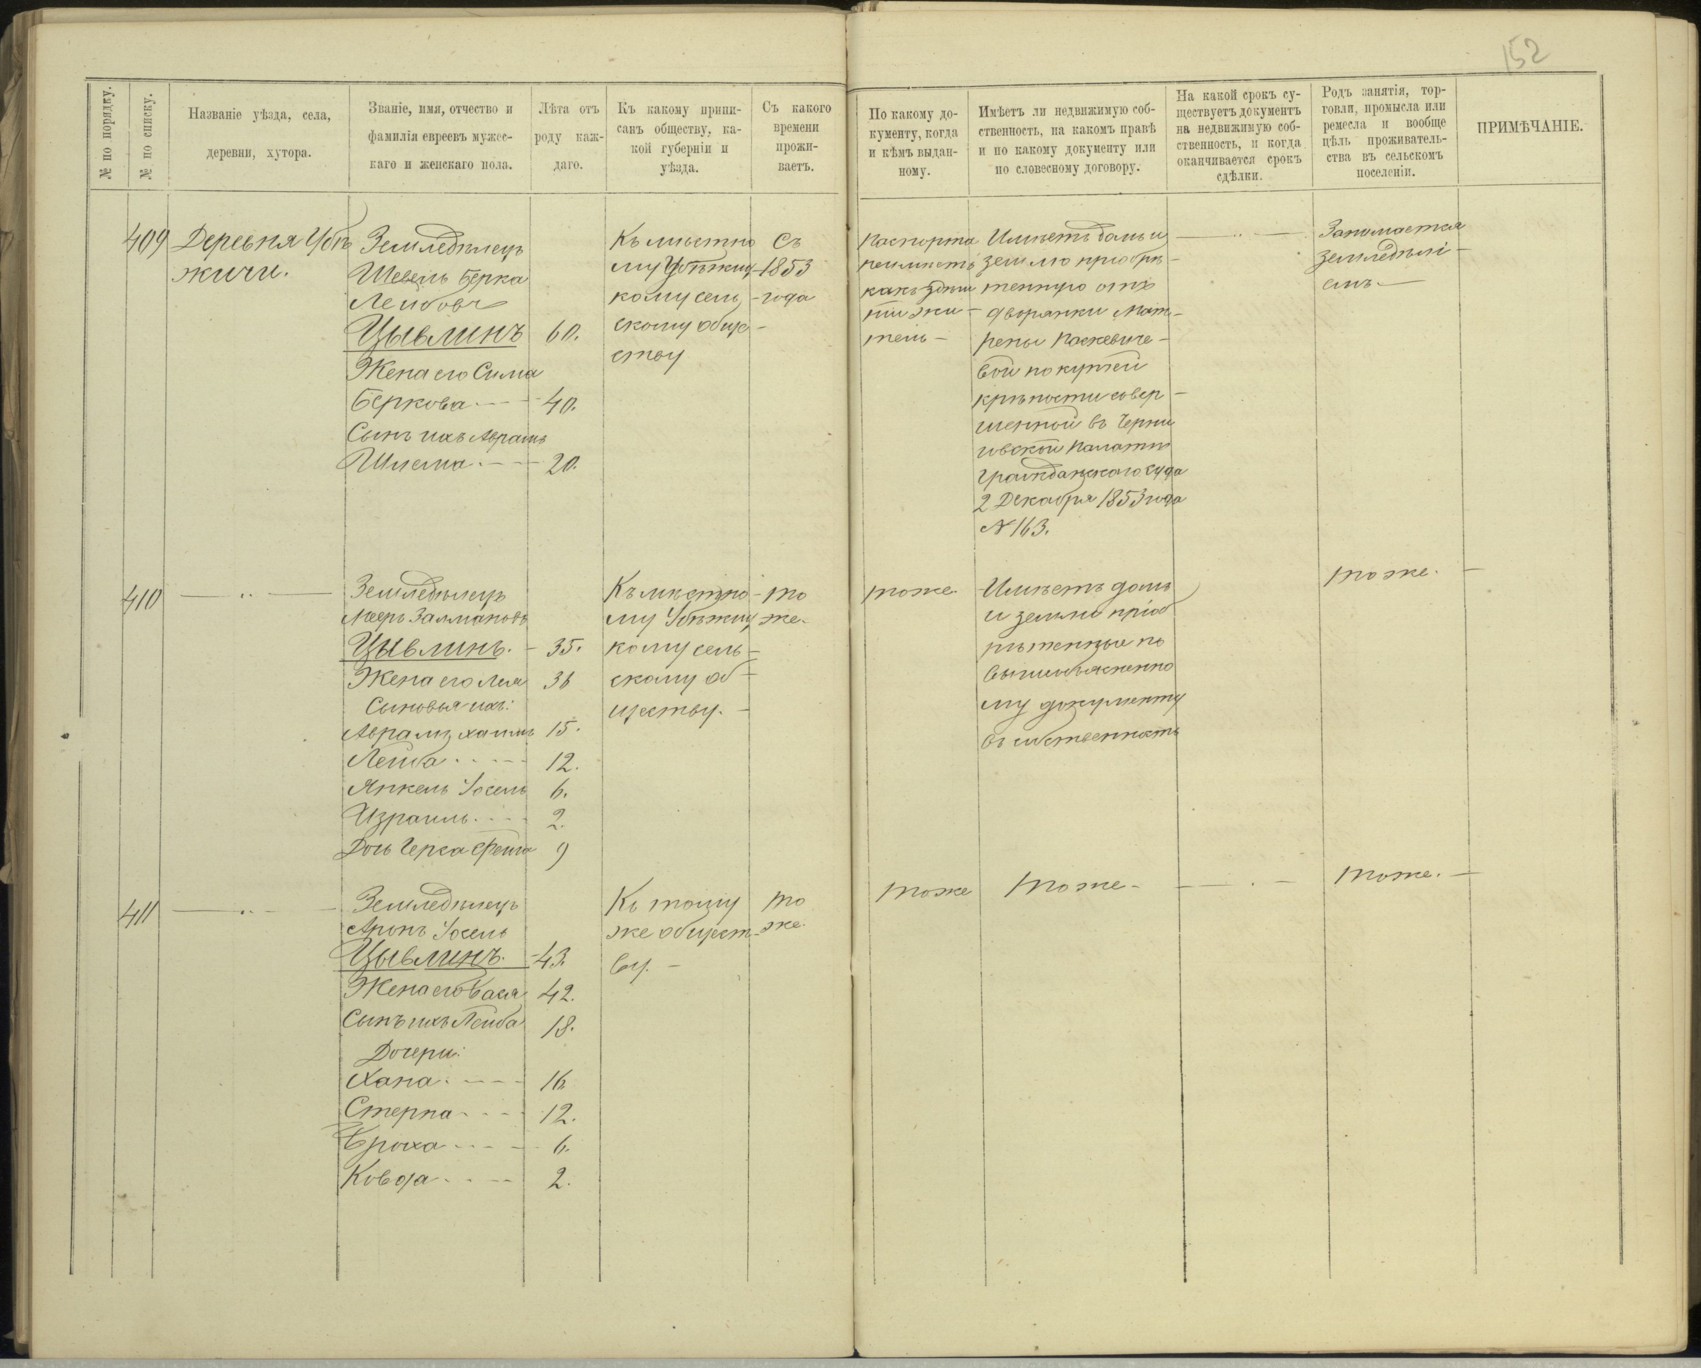 152
№ по порядку.
№ по списку.
Названіе уѣзда, села,
деревни, хутора.
Званіе, имя, отчество и
фамилія евреевъ мужес-
каго и женскаго пола.
Лѣта отъ
роду каж-
даго.
Къ какому припи-
санъ обществу, ка-
кой губерніи и
уѣзда.
Съ какого
времени
прожи-
ваетъ.
По какому до-
кументу, когда
и кѣмъ выдан-
ному.
Имѣетъ ли недвижимую соб-
ственность, на какомъ правѣ
и по какому документу или
по словесному договору.
На какой срокъ су-
ществуетъ документъ
на недвижимую соб-
ственность, и когда
оканчивается срокъ
сдѣлки.
Родъ занятія, тор-
говли, промысла или
ремесла и вообще
цѣль проживатель-
ства въ сельскомъ
поселеніи.
ПРИМѢЧАНІЕ.
409
Деревня Убѣ
жичи.
Земледѣлецъ
Шевель Берка
Лейбовъ
Цывлинъ 60.
Жена его Сима
Беркова 40.
Сынъ ихъ Абрамъ
Шлема 20.
Къ мѣстно
му Убѣжиц
кому сель
скому общe
ству
Съ
1853
года
Паспорта
неимѣетъ
какъ здѣш
ній жи-
тель
Имѣетъ домъ и
землю пріобрѣ-
тенную отъ
дворянки Мат-
рены Паскевиче-
вой по купчей
крѣпости совер-
шенной въ Черни
говской Палатѣ
Гражданскаго суда
2 Декабря 1853 года
№ 163.
Занимается
земледѣлі-
емъ
410
Земледѣлецъ
Мееръ Залмановъ
Цывлинъ. 35.
Жена его Лея 36
Сыновья ихъ:
Абрамъ Хаимъ 15.
Лейба 12.
Янкель Іосель 6.
Израиль 2.
Дочь Черка Фейга 9
Къ мѣстно
му Убѣжиц
кому сель-
скому об-
ществу.
то
же.
тоже
Имѣетъ домъ
и землю пріоб
рѣтенные по
вышеобъясненно
му документу
въ собственность
тоже.
411
Земледѣлецъ
Аронъ Іосель
Цывлинъ. 43.
Жена его Бася 42.
Сынъ ихъ Лейба 18.
Дочери:
Хана 16
Стерна 12.
Броха 6.
2.
Къ тому
же общест-
ву.
то
же.
тоже
тоже
тоже.